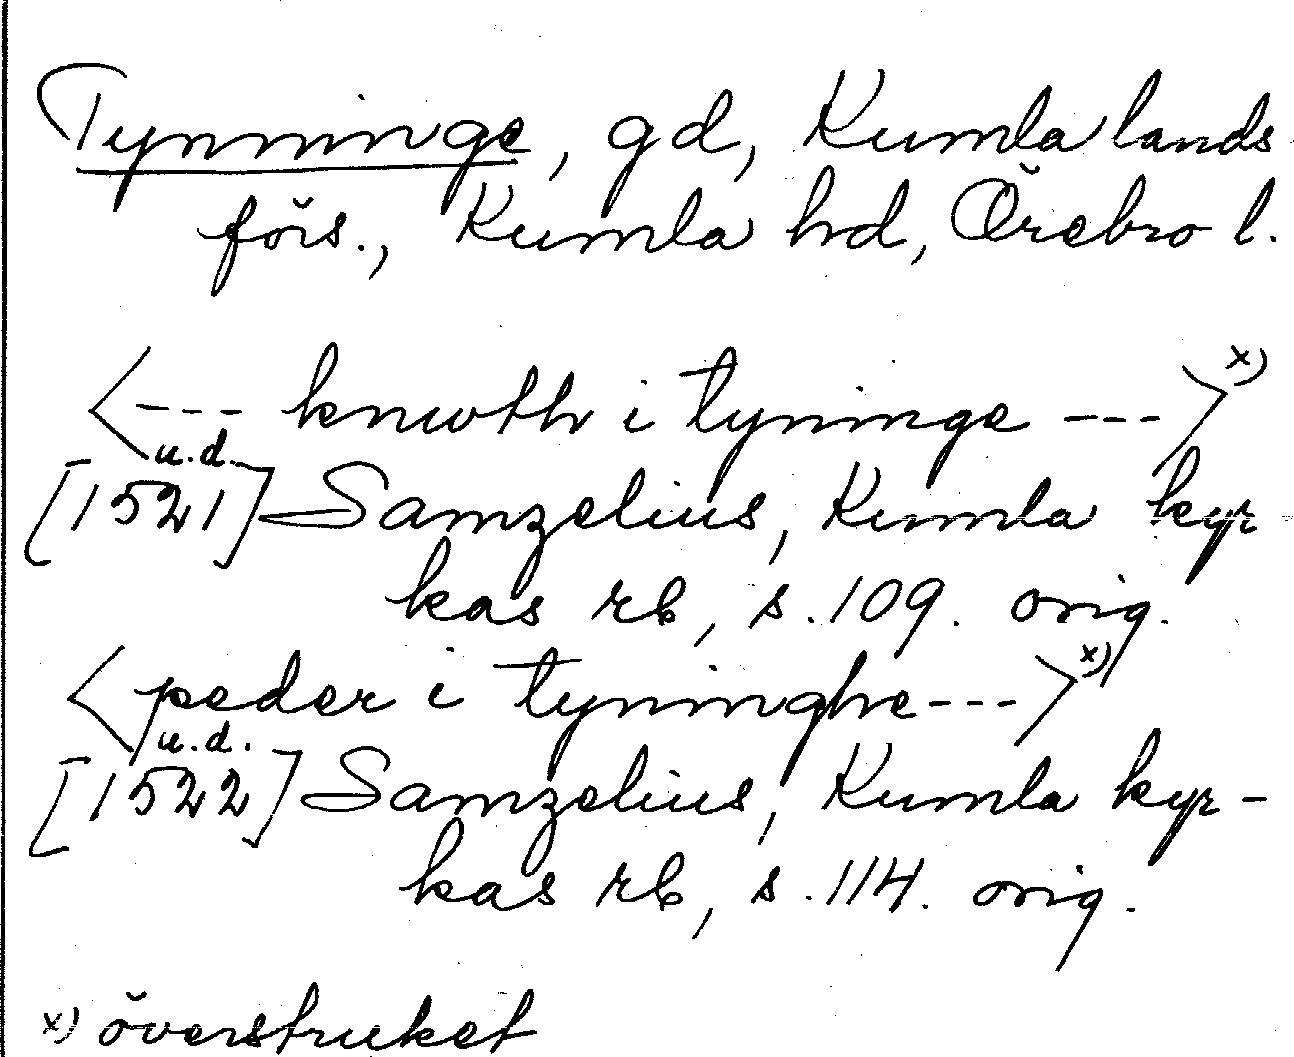 Tynninge, gd, Kumla lands
förs., Kumla hd, Örebro l.
<--- knwth i tyninge --->x)
u.d.
[1521] Samzelius, Kumla kyr-
kas rb, s. 109. orig.
<peder i tyninghe--->x)
u.d.
[1522] Samzelius, Kumla kyr-
kas rb, s. 114. orig.
x) överstruket